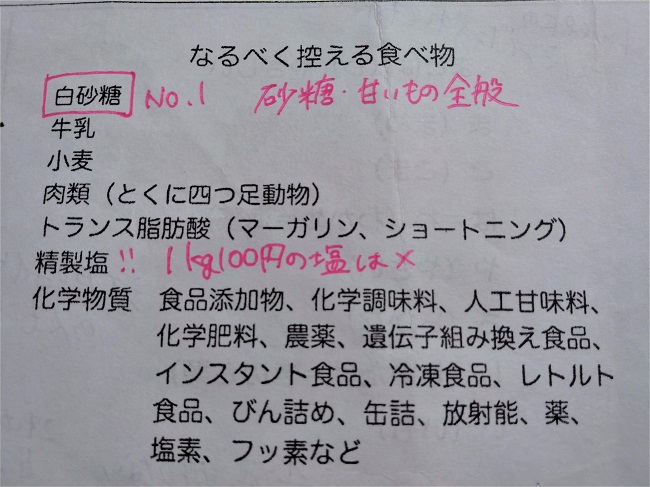 なるべく控える食べ物
白砂糖 No.1 砂糖・甘いもの全般
牛乳
小麦
肉類（とくに四つ足動物）
トランス脂肪酸（マーガリン、ショートニング）
精製塩!! 1kg100円の塩は×
化学物質 食品添加物、化学調味料、人工甘味料、
化学肥料、農薬、遺伝子組み換え食品、
インスタント食品、冷凍食品、レトルト
食品、びん詰め、缶詰、放射能、薬、
塩素、フッ素など